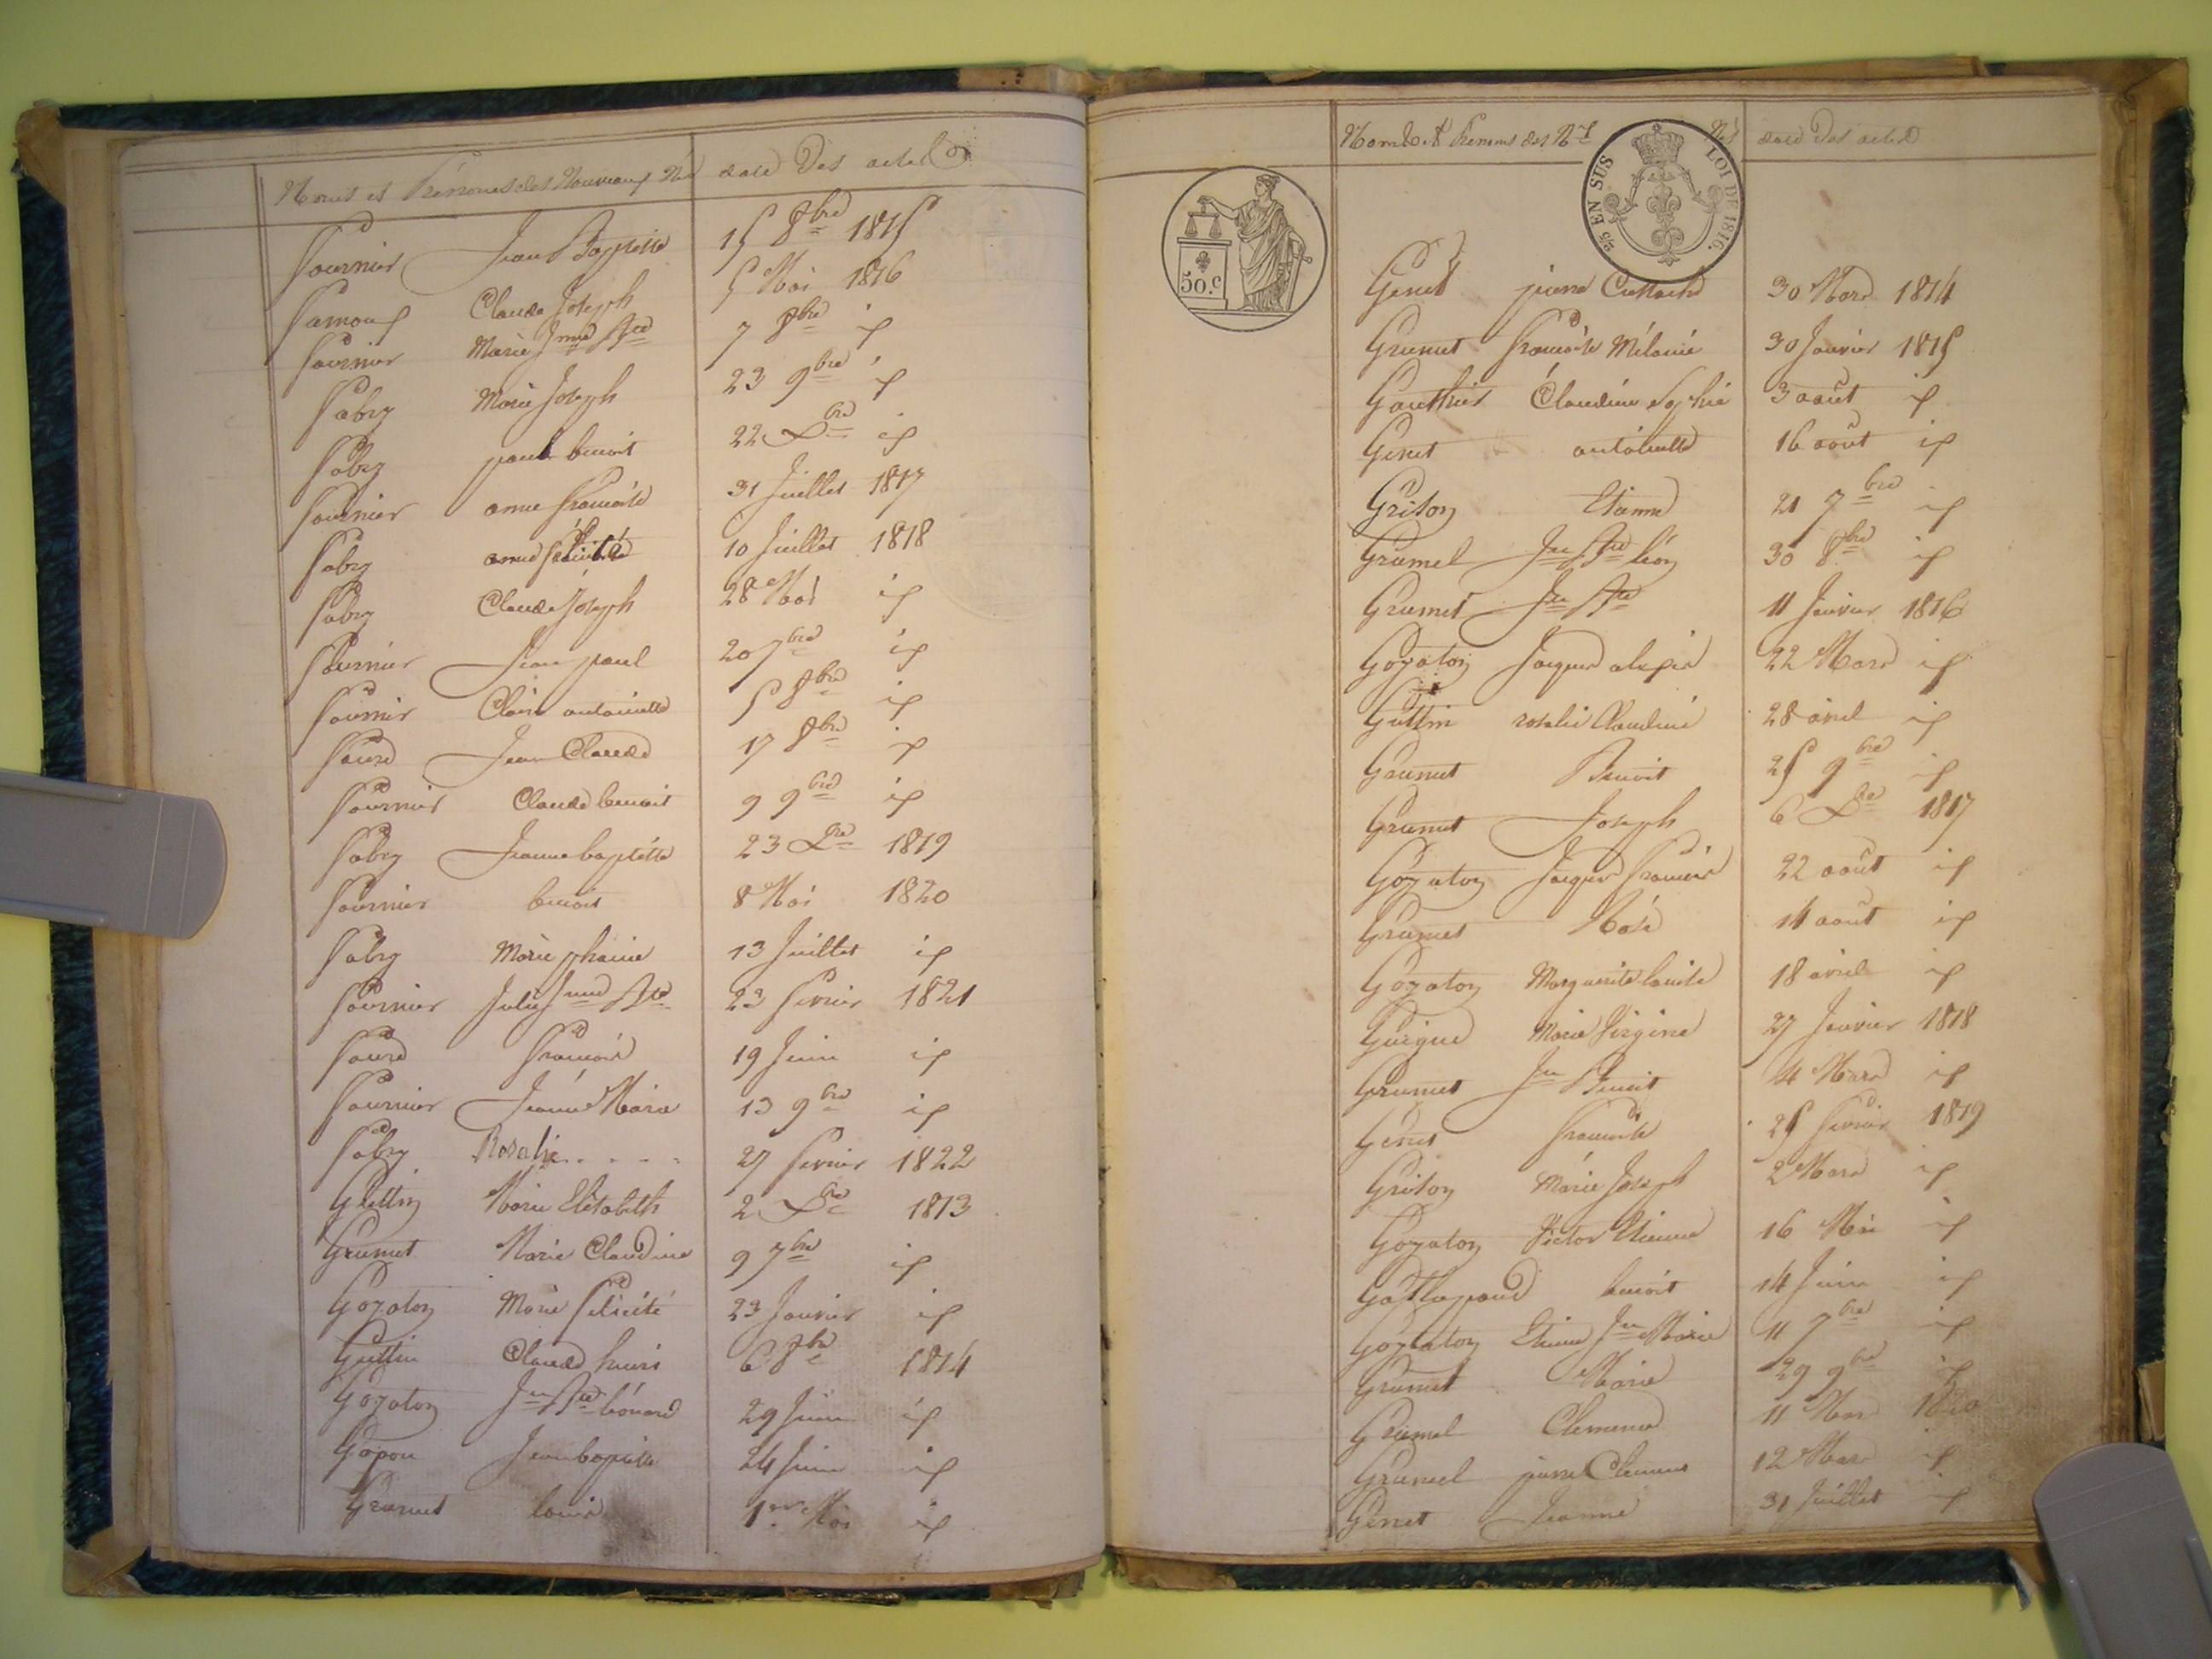 Noms et Prénoms des Nouveaux Nés date Des actes
Fournier Jean Baptiste 15 8bre 1815
Claude Joseph 5 Mai 1816
Fournier Marie Jnne Bte 7 8bre id
Fabry Marie Joseph 23 9bre id
Fabry paul benoit 22 Xbre id
Fournier anne françoise 31 Juillet 1817
Fabry anne félicité 10 Juillet 1818
Fabry Claude Joseph 28 id
Fournier Jean paul 20 7bre id
Fournier Claire antoinette 5 8bre id
Faure Jean Claude 17 8bre id
Fournier Claude benoit 9 9bre id
Fabry Jeanne baptiste 23 Xbre 1819
Fournier benoit 8 Mai 1820
Fabry Marie 13 Juillet id
Fournier Julie Jnne Bte 23 fevrier 1821
Faure François 19 Juin id
Fournier Jeanne Marie 13 9bre id
Fabry Rosalie.... 27 fevrier 1822
Guttin Marie Elisabeth 2 Xbre 1813
Grumet Marie Claudine 9 7bre id
Gozaton Marie Félicité 23 Janvier id
Guttin Claude 6 8bre 1814
Gozaton Jn Bte léonard 29 Juin id
Jean baptiste 24 Juin id
Grumet louis 1er Mai id
Noms et Prenoms des Nx Nés date Des actes
50.C
2/5 EN SUS LOI DE 1816.
Genet pierre 30 Mars 1814
Grumet françoise Mélanie 30 Janvier 1815
Gauthier Claudine Sophie 3 août id
Genet antoinette 16 août id
Grison Etienne 21 7bre id
Grumel Jn Bte léon 30 8bre id
Grumet Jn Bte 11 Janvier 1816
Gozaton Jacques alexis 22 Mars id
Guttin rosalie Claudine 28 avril id
Grumet Benoit 25 9bre id
Grumet Joseph 6 Xbre 1817
Gozaton Jacques François 22 août id
Grumet Rose 14 août id
Gozaton Marguerite louise 18 avril id
Guigue Marie Virginie 27 Janvier 1818
Grumet Jn Benoit 4 Mars id
Genet françoise 25 fevrier 1819
Grison Marie Joseph 2 Mars id
Gozaton Victor Etienne 16 Mai id
benoit 14 Juin id
Gozaton Etienne Jn Marie 11 7bre id
Grumet Marie 29 9bre id
Grumel Clemence 11 Mars 1820
Grumel pierre Clement 12 Mars id
Genet Jeanne 31 Juillet id